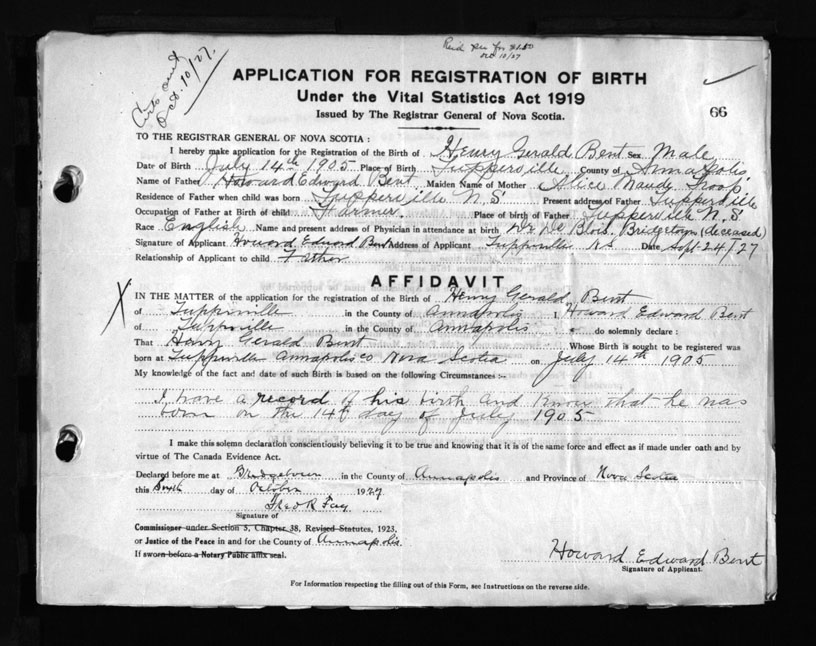 Oct 10/27
Oct. 10/27.
APPLICATION FOR REGISTRATION OF BIRTH
Under the Vital Statistics Act 1919
66
Issued by The Registrar General of Nova Scotia.
TO THE REGISTRAR GENERAL OF NOVA SCOTIA :
I hereby make application for the Registration of the Birth of Henry Gerald Bent Sex Male
Date of Birth July 14th 1905 Place of Birth Tupperville County of Annapolis
Name of Father Howard Edward Bent Maiden Name of Mother Alice Maudy Troop
Residence of Father when child was born Tupperville N.S Present address of Father Tupperville
Occupation of Father at Birth of child Farmer. Place of birth of Father Tupperville N.S
Race English Name and present address of Physician in attendance at birth Dr De Blois. Bridgetown (deceased)
Signature of Applicant Howard Edward Bent Address of Applicant Tupperville N.S Date Sept 24/27
Relationship of Applicant to child Father
AFFIDAVIT
X
IN THE MATTER of the application for the registration of the Birth of Henry Gerald Bent
of Tupperville in the County of Annapolis I, Howard Edward Bent
of Tupperville in the County of Annapolis do solemnly declare :
That Henry Gerald Bent Whose Birth is sought to be registered was
born at Tupperville Annapolis Co Nova Scotia on July 14th 1905
My knowledge of the fact and date of such Birth is based on the following Circumstances :-
I have a record of his birth and know that he was
born on the 14th day of July 1905
I make this solemn declaration conscientiously believing it to be true and knowing that it is of the same force and effect as if made under oath and by
virtue of The Canada Evidence Act.
Declared before me at Bridgetown in the County of Annapolis and Province of Nova Scotia
this day of October 1927
Fay
Signature of
Commissioner under Section 5, Chapter 38, Revised Statutes, 1923,
or Justice of the Peace in and for the County of Annapolis.
If sworn before a Notary Public affix seal.
Howard Edward Bent
Signature of Applicant.
For Information respecting the filling out of this Form, see Instructions on the reverse side.